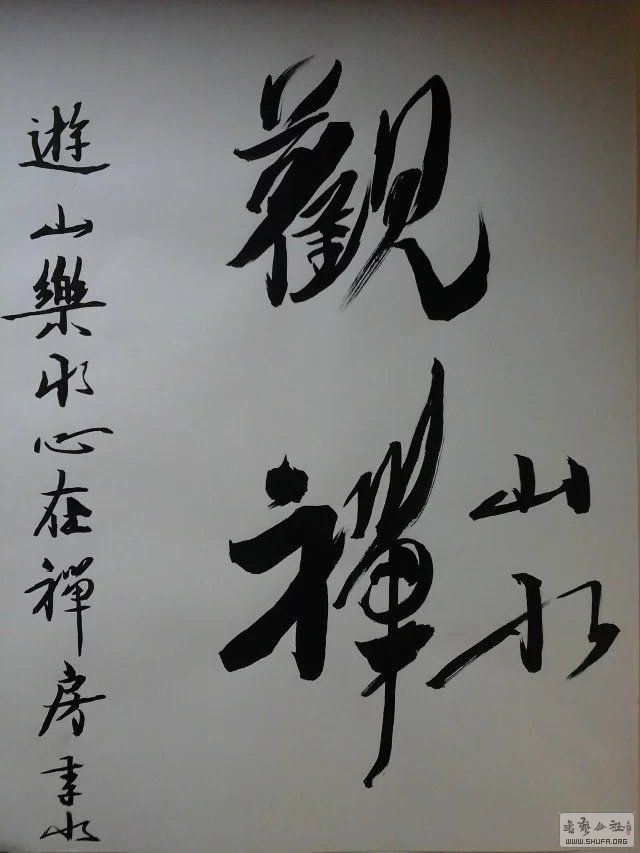 山水
觀禪
遊山樂水心在禪房
書藝公社
WWW.SHUFA.ORG